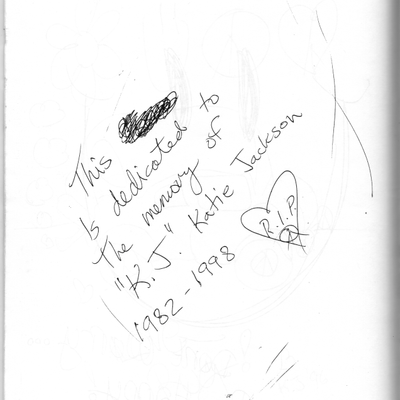 This
Is dedicated to
the memory of
"K.J." Katie Jackson
1982-1998
R.I.P.